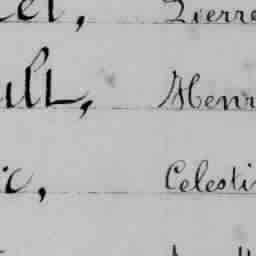 let, Pierre
ull, Henr
ic, Celesti